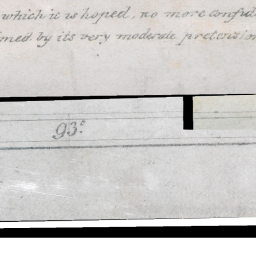 which it is hoped, no more confu
med by its very moderate pretensi
93°